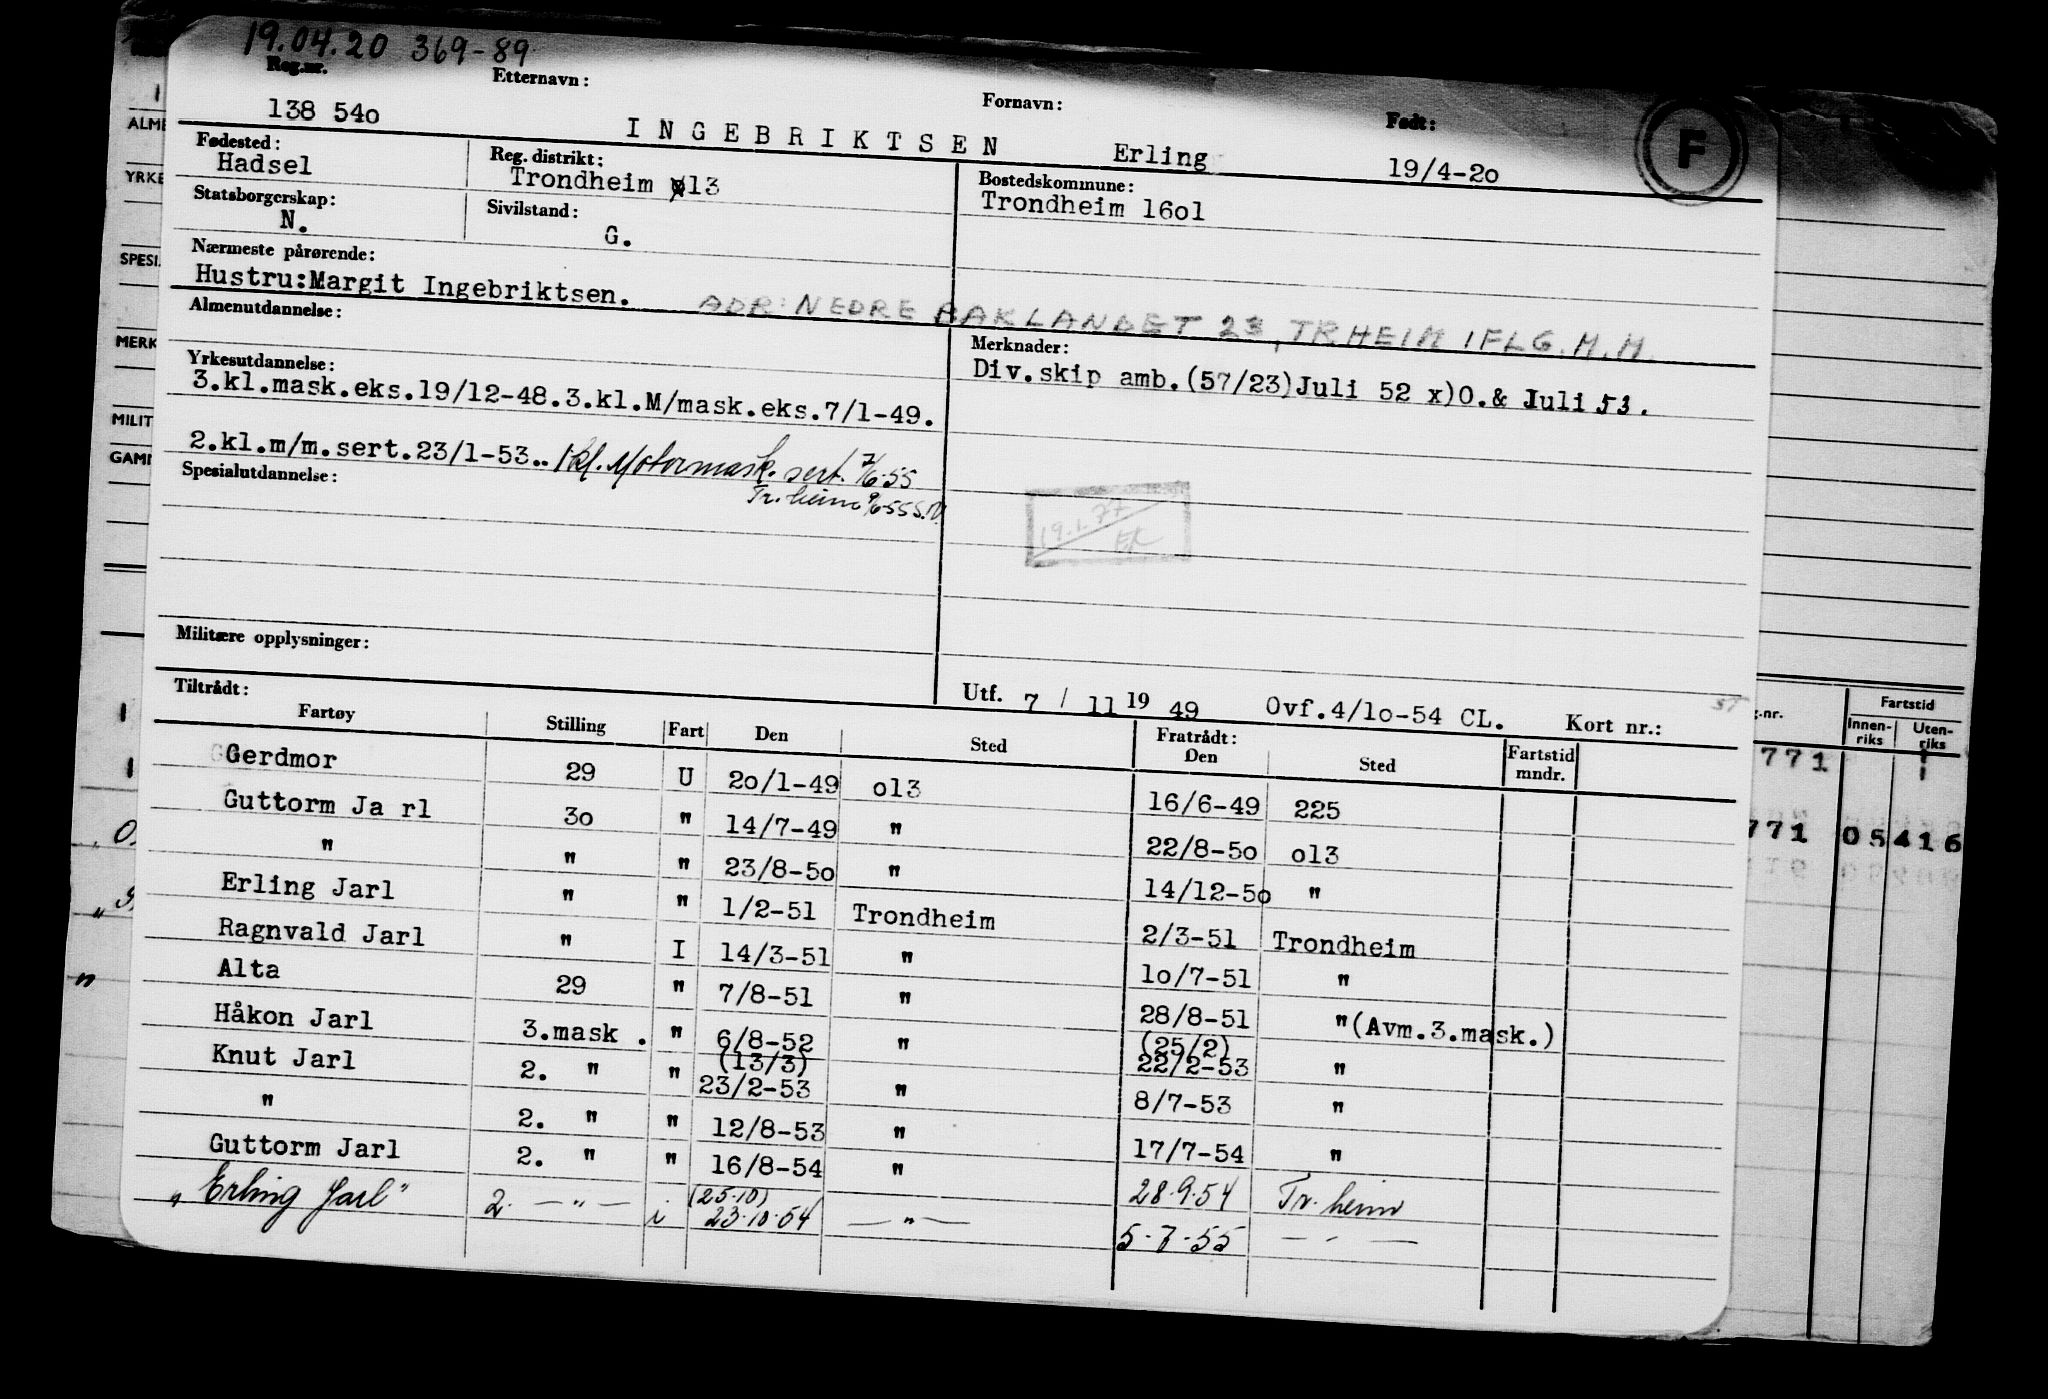 19.04.20 369-89
Reg.nr. Etternavn: Fornavn: Født:
138 54o INGEBRIKTSEN Erling 19/4-2o
F
Fødested: Reg. distrikt: Bostedskommune:
Hadsel Trondheim 13 Trondheim 16o1
Statsborgerskap: Sivilstand:
N. G.
Nærmeste pårørende:
Hustru:Margit Ingebriktsen. ADR: NEDRE BAKLANDET 23, TRHEIM IFLG. M.M.
Almenutdannelse: Merknader:
Div.skip amb.(57/23)Juli 52 x)O.& Juli 53.
Yrkesutdannelse:
3.kl.mask.eks.19/12-48.3.kl.M/mask.eks.7/1-49.
2.kl.m/m.sert.23/1-53.. 1kl. Motormask. sert. 7/6-55
Spesialutdannelse: Tr.heim 9/6-55 S.
19.1.
Militære opplysninger:
Utf. 7 / 11 19 49 Ovf.4/1o-54 CL. Kort nr.:
Tiltrådt: Fratrådt:
Fartøy Stilling Fart Den Sted Den Sted Fartstid mndr.
Gerdmor 29 U 2o/1-49 o13 16/6-49 225
Guttorm Ja rl 3o " 14/7-49 " 22/8-5o o13
" " " 23/8-5o " 14/12-5o "
Erling Jarl " " 1/2-51 Trondheim 2/3-51 Trondheim
Ragnvald Jarl " I 14/3-51 " 1o/7-51 "
Alta 29 " 7/8-51 " 28/8-51 "(Avm.3.mask.)
Håkon Jarl 3.mask . " 6/8-52 " (25/2) 22/2-53 "
Knut Jarl 2. " " (13/3) 23/2-53 " 8/7-53 "
" 2. " " 12/8-53 " 17/7-54 "
Guttorm Jarl 2. " " 16/8-54 " 28.9.54 Tr.heim
"Erling Jarl" 2. — " — i (25.10) 23.10.54 — " — 5.7.55 — " —
ALME
YRKE
SPESI
MERK
MILIT
GAM
g.nr. Fartstid
Innen-riks Uten-riks
771
771 05 416